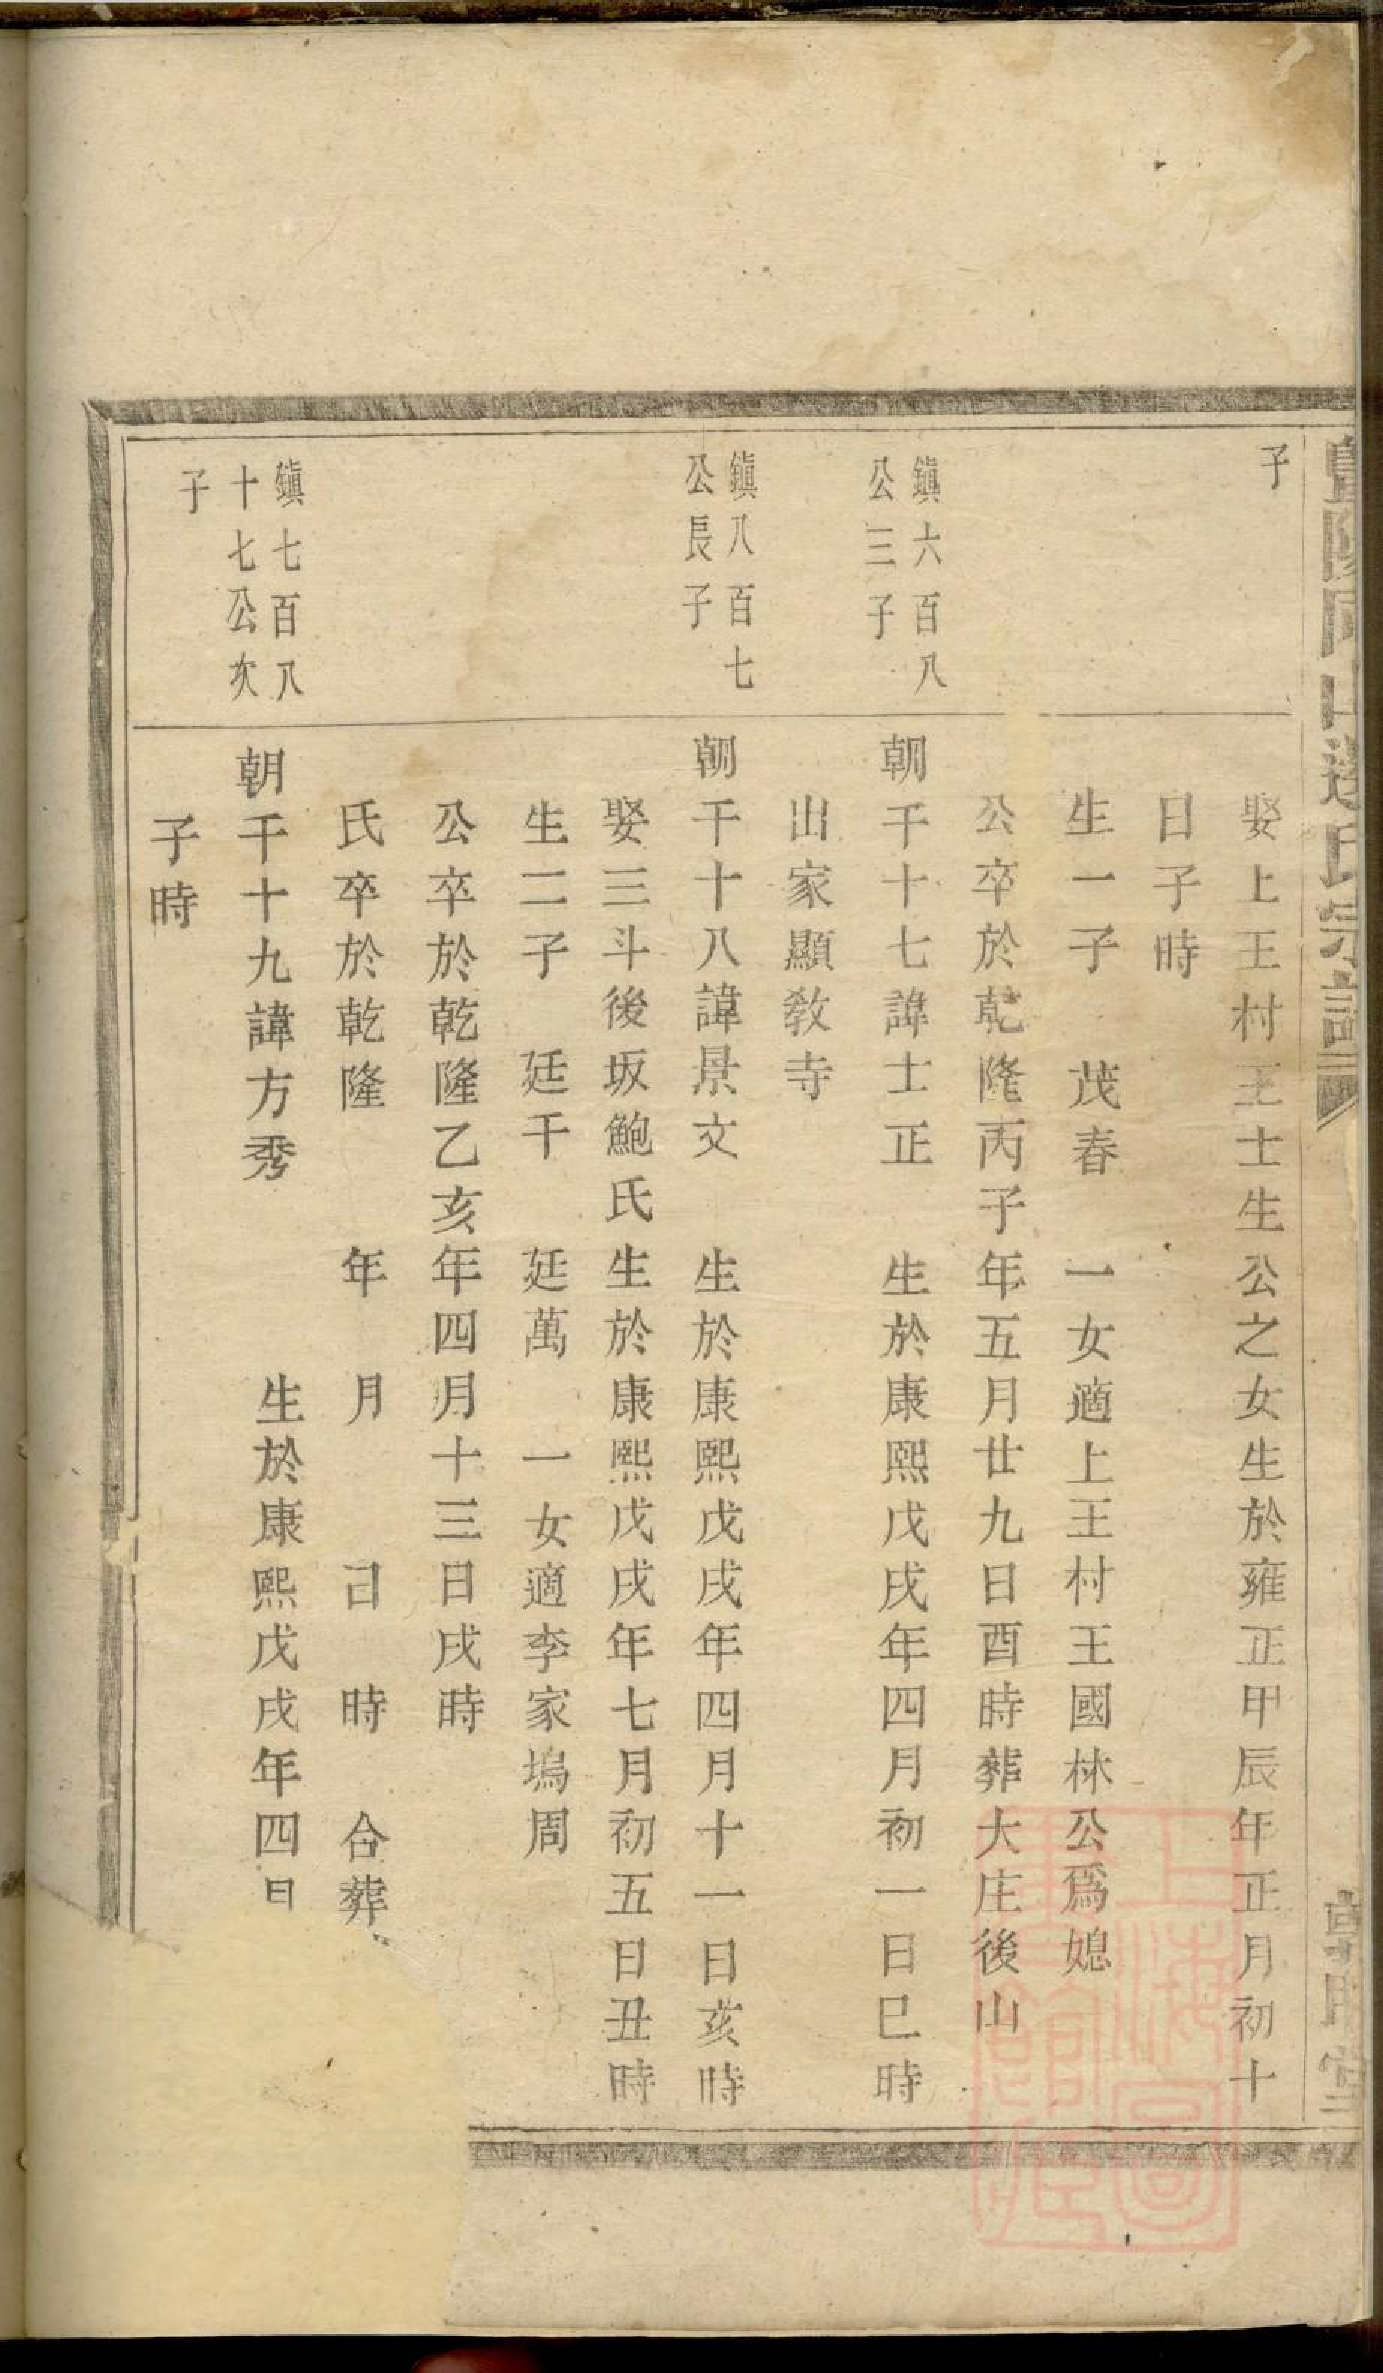 子
娶上王村王士生公之女生於雍正甲辰年正月初十
日子時
生一子　茂春　一女適上王村王國林公爲媳
公卒於乾隆丙子年五月廿九日酉時葬大庄後山
鎮六百八
公三子
朝千十七諱士正　生於康熙戊戌年四月初一日巳時
出家顯教寺
鎮八百七
公長子
朝千十八諱景文　生於康熙戊戌年四月十一日亥時
娶三斗後坂鮑氏生於康熙戊戌年七月初五日丑時
生二子　廷千　廷萬　一女適李家塢周
公卒於乾隆乙亥年四月十三日戌時
氏卒於乾隆　年　月　日　時　合葬
鎮七百八
十七公次
子
朝千十九諱方秀　生於康熙戊戌年四日
子時